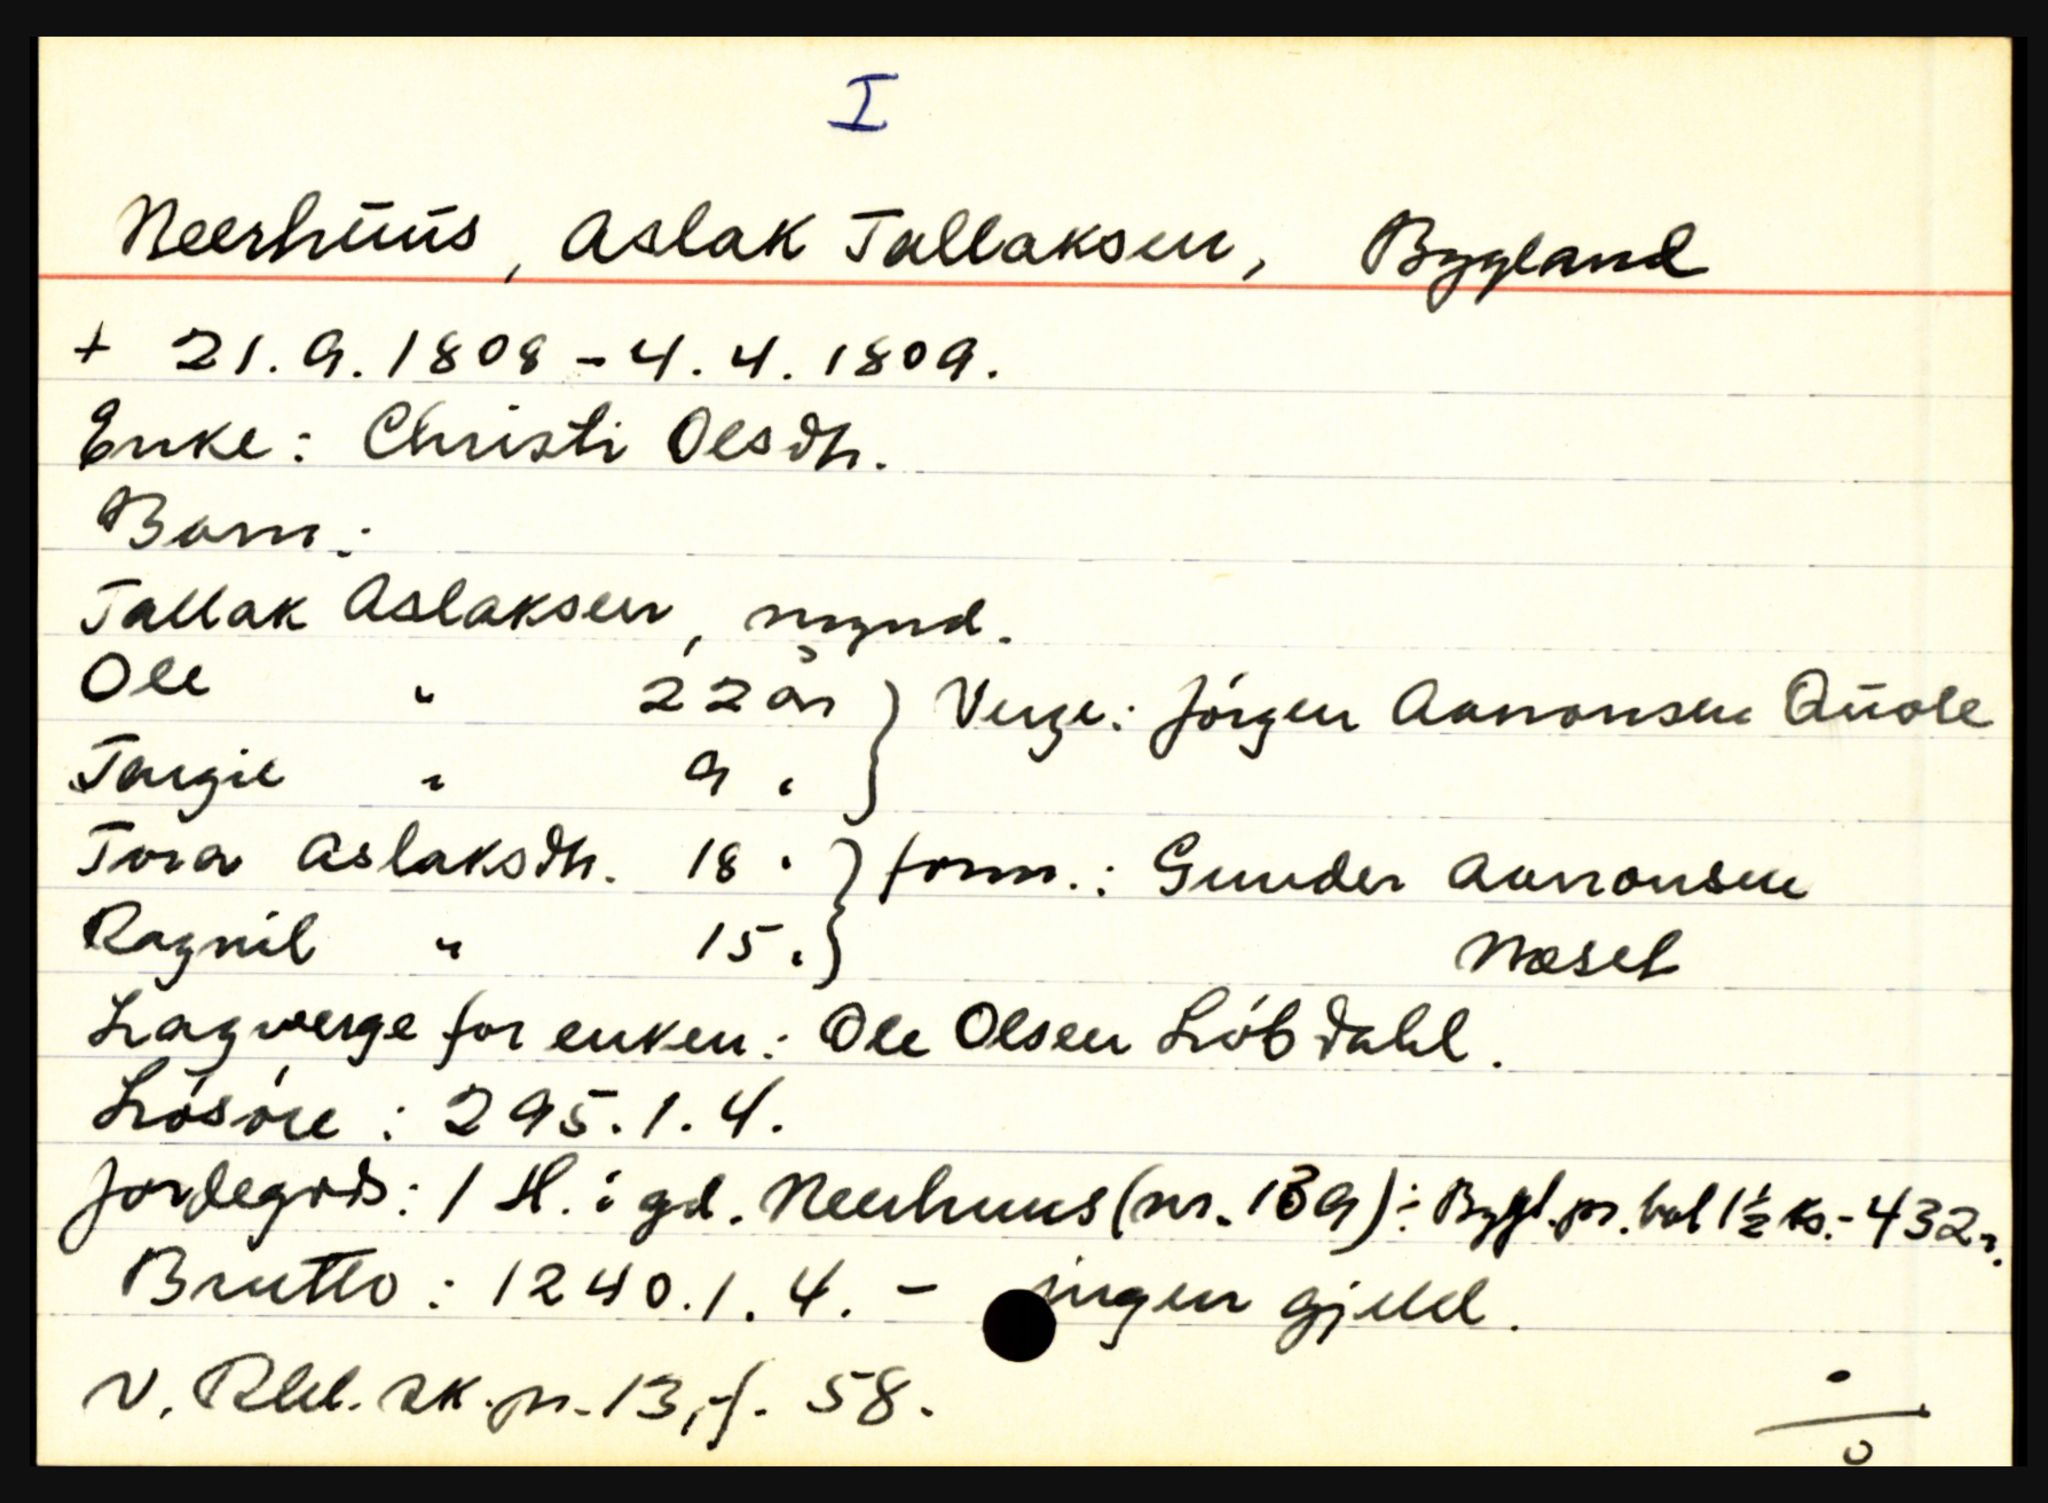 I
Neerhuus, Aslak Tallaksen, Bygland
+ 21.9.1808 - 4.4.1809.
Enke: Christi Olsdtr.
Barn:
Tallak Aslaksen, mynd.
Ole " 22 år } Verge: Jörgen Aanonsen Quale
Targie " 9 " }
Tora Aslaksdtr. 18 " } form.: Gunder Aanonsen
Ragnil " 15 " } Næset
Lagverge for enken: Ole Olsen Löbdahl.
Lösöre: 295.1.4.
Jordegods: 1 H. i gd. Neerhuus (nr. 139) i Bygl. pr. bol 1½ ks. - 432
Brutto: 1240.1.4. - ingen gjeld.
V. Rbd. sk. pr. 13, f. 58.